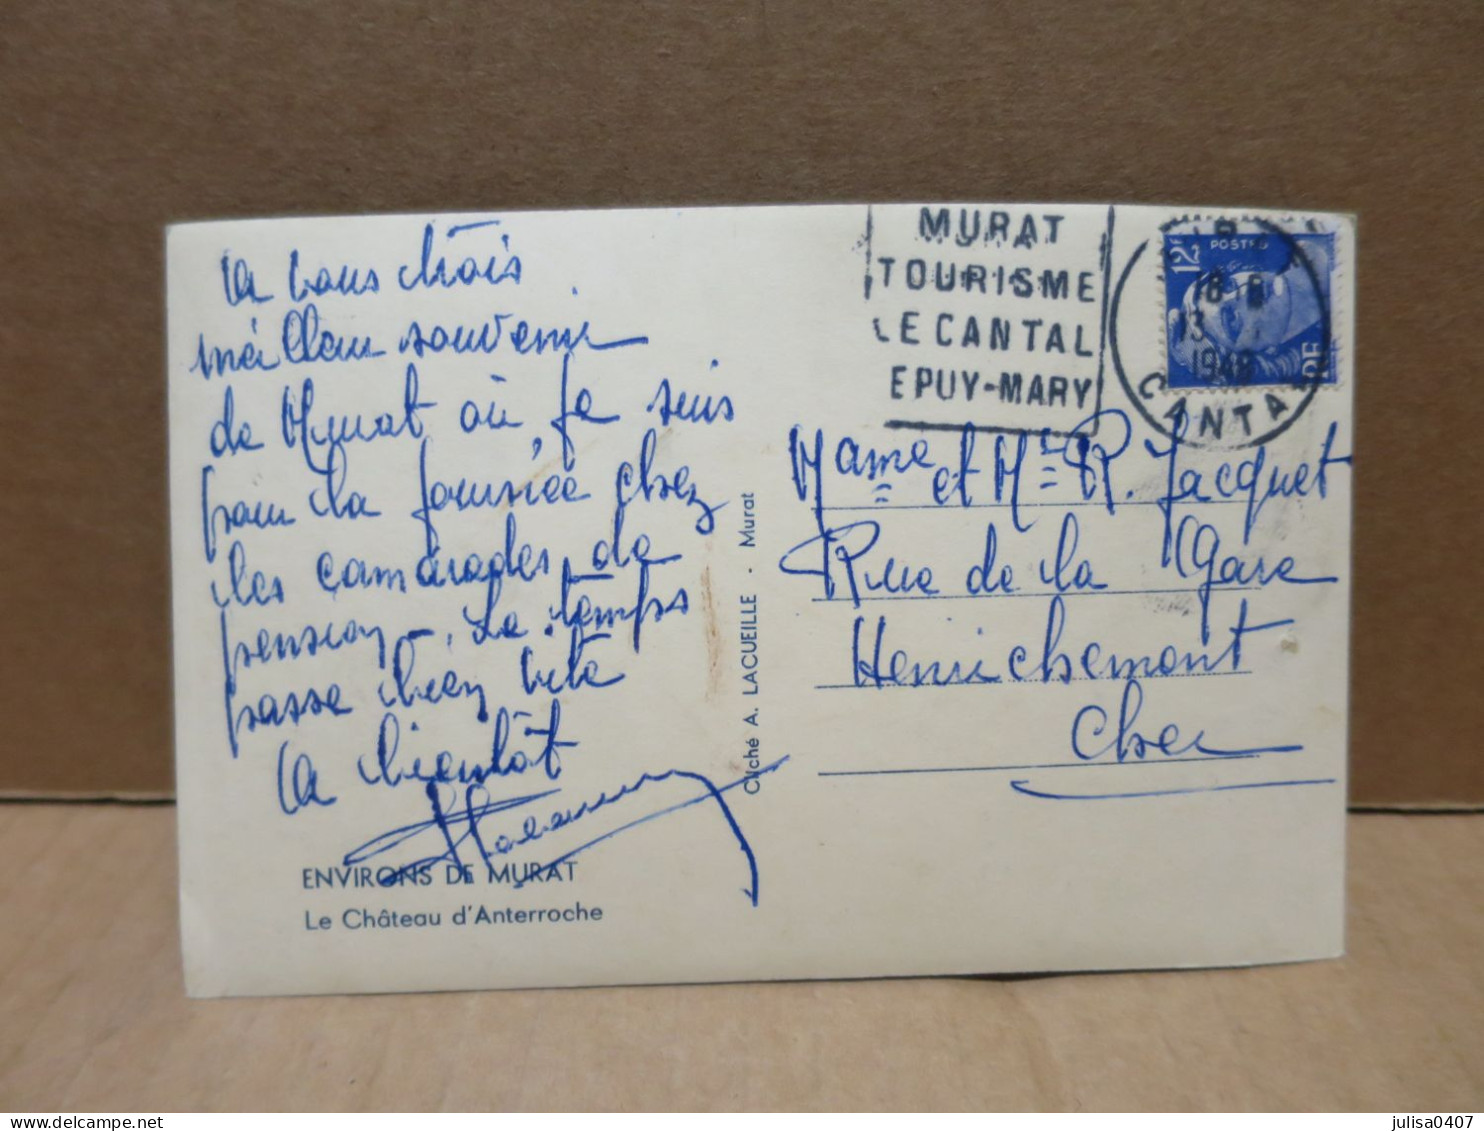 A vous trois
meilleur souvenir
de Murat où je suis
pour la journée chez
des camarades de
pension. Le temps
passe bien vite
A bientôt
ENVIRONS DE MURAT
Le Château d'Anterroche
Cliché A. LACUEILLE - Murat
MURAT
TOURISME
LE CANTAL
E PUY-MARY
12F POSTES
RF
18 H
13
1948
CANTAL
Mame et Mr R. Jacquet
Rue de la Gare
Henrichemont
Cher
julisa0407